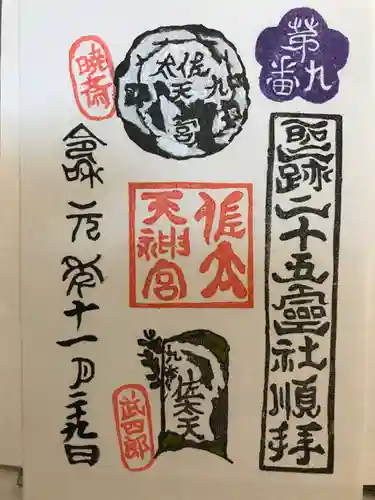 第九番
聖跡二十五靈社順拝
佐太天宮
九
暁斎
佐太
天神宮
九番
佐太天
武四郎
令和元年十一月二十九日